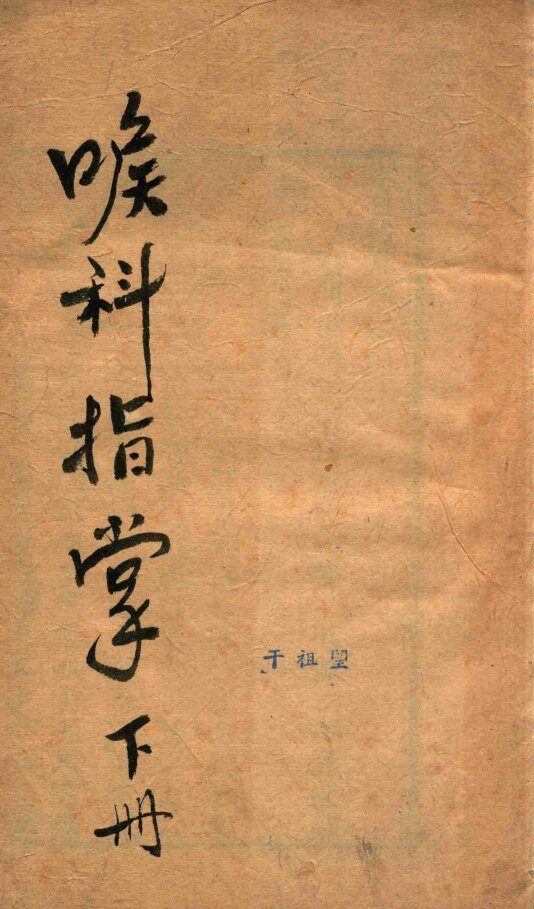 喉科指掌 下册
干祖望